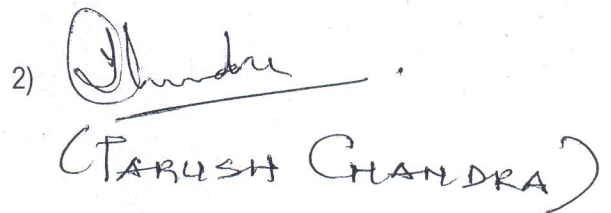 2)
(TARUSH CHANDRA)